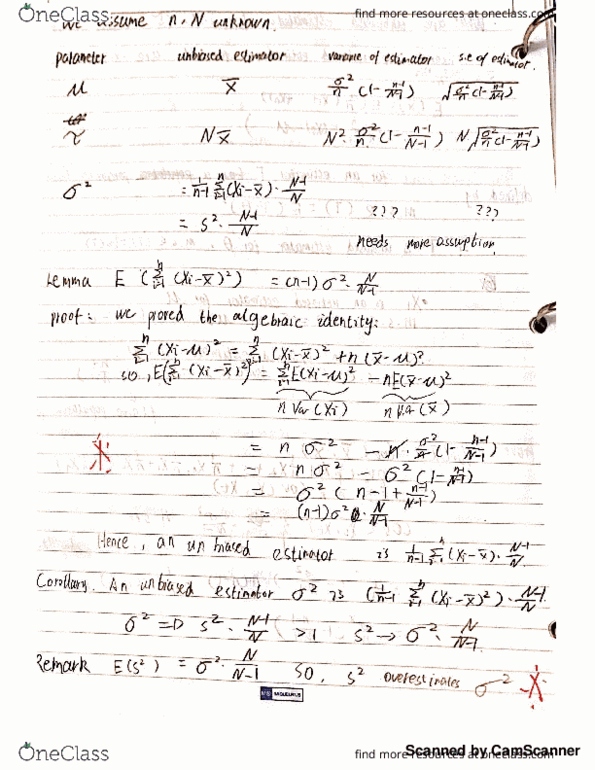 OneClass
find more resources at oneclass.com
We assume n, N unknown.
parameter unbiased estimator variance of estimator s.e of estimator.
μ x̄ σ²/n (1 - n-1/N-1) √(σ²/n (1 - n-1/N-1))
τ N x̄ N² · σ²/n (1 - n-1/N-1) N √(σ²/n (1 - n-1/N-1))
σ² = 1/n-1 Σⁿᵢ₌₁ (Xi - x̄)² · N-1/N
= s² · N-1/N ??? ???
needs more assumption
Lemma E (Σⁿᵢ₌₁ (Xi - x̄)²) = (n-1) σ² · N/N-1
proof: we proved the algebraic identity:
Σⁿᵢ₌₁ (Xi - μ)² = Σⁿᵢ₌₁ (Xi - x̄)² + n (x̄ - μ)²
so, E(Σⁿᵢ₌₁ (Xi - x̄)²) = Σⁿᵢ₌₁ E(Xi - μ)² - n E(x̄ - μ)²
n Var (Xi) n Var (x̄)
= n σ² - n · σ²/n (1 - n-1/N-1)
= n σ² - σ² (1 - n-1/N-1)
= σ² (n - 1 + n-1/N-1)
= (n-1) σ² · N/N-1
Hence, an unbiased estimator is 1/n-1 Σⁿᵢ₌₁ (Xi - x̄) · N-1/N
Corollary. An unbiased estimator σ² is (1/n-1 Σⁿᵢ₌₁ (Xi - x̄)²) · N-1/N
σ² => s² · N-1/N >1 s² → σ² · N/N-1
Remark E(s²) = σ² · N/N-1 so, s² overestimates σ²
OneClass
find more resources at oneclass.com
Scanned by CamScanner